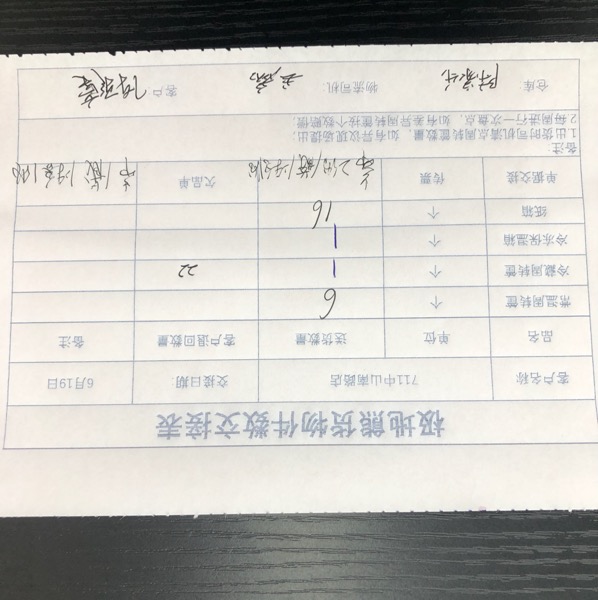 极地熊货物件数交接表
客户名称 711中山南路店 交接日期: 6月19日
品名 单位 送货数量 客户退回数量 备注
常温周转筐 个 6
冷藏周转筐 个 1 22
冷冻保温箱 个 1
纸箱 个 16
单据交接 传票 欠品单
备注:
1.出货时司机清点周转筐数量,如有异议现场提出;
2.每周进行一次盘点,如有差异周转筐按个数赔偿
仓库: 物流司机: 客户: